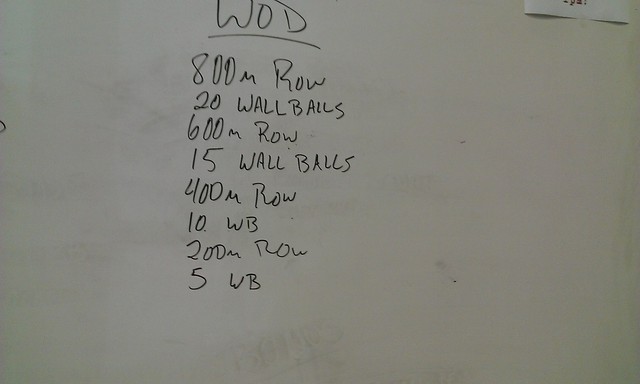 WOD
800m Row
20 WALLBALLS
600m Row
15 WALL BALLS
400m Row
10 WB
200m Row
5 WB